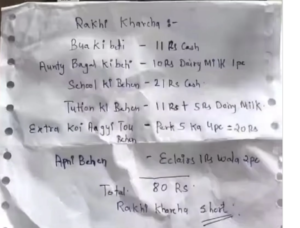 Rakhi Kharcha :-
Bua ki beti - 11 Rs Cash
Aunty Bagal ki beti - 10Rs Dairy Milk 1pc
School ki Behen - 21 Rs Cash
Tution ki Behen - 11 Rs + 5Rs Dairy Milk
Extra Koi Aagyi Tou - Park 5 Ka 4pc = 20 Rs
Behen
Apni Behen - Eclairs 1Rs wala 2pc
Total: 80 Rs
Rakhi Kharcha short